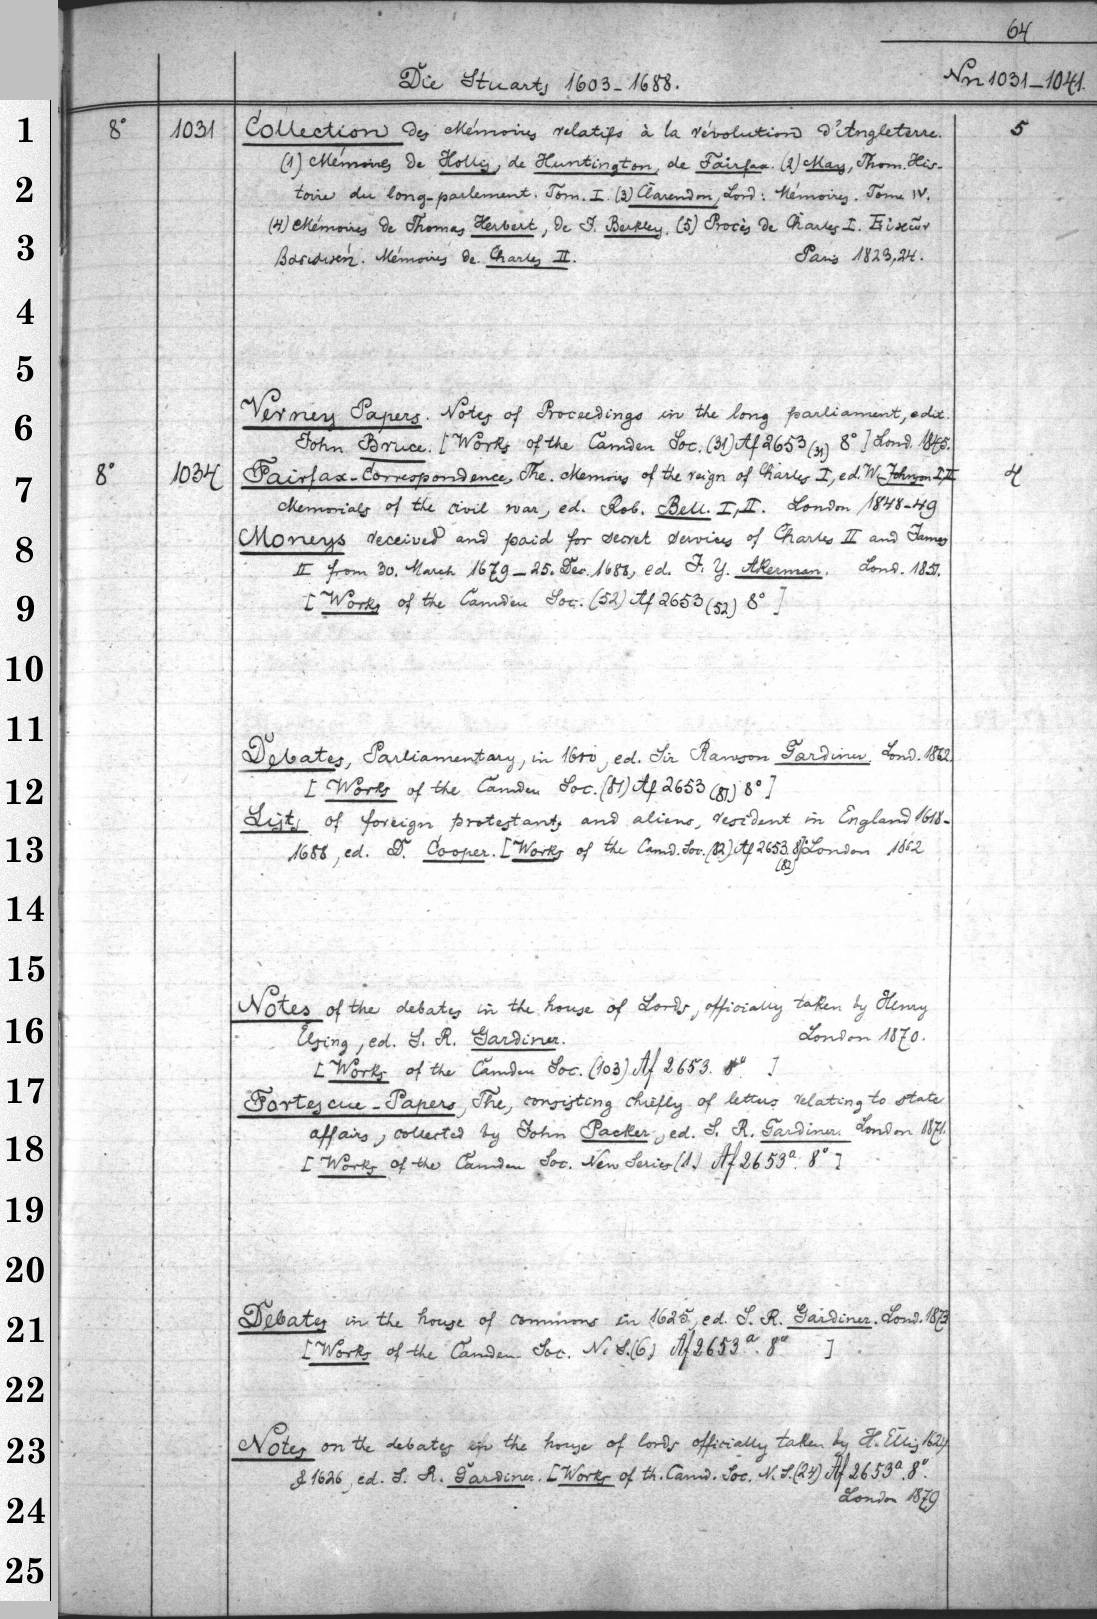 64
Die Stuarts 1603-1688.
Nrn 1031-1041.
8° 1031 Collection des Mémoires relatifs à la révolution d'Angleterre. 5
(1) Mémoires de Hollis, de Huntington, de Fairfax. (2) May, Thom. His-
toire du long-parlement. Tom. I. (3) Clarendon, Lord: Mémoires. Tome IV.
(4) Mémoires de Thomas Herbert, de J. Berkley. (5) Procès de Charles I. Εἰκὼν
Βασιλική. Mémoires de Charles II. Paris 1823,24.
Verney Papers. Notes of Proceedings in the long parliament, edit.
John Bruce. [Works of the Camden Soc. (31) Af 2653 (31) 8°] Lond. 1845.
8° 1034 Fairfax-Correspondence, The. Memoirs of the reign of Charles I, ed. W. Johnson I,II 4
Memorials of the civil war, ed. Rob. Bell. I,II. London 1848-49
Moneys received and paid for secret services of Charles II and James
II from 30. March 1679-25. Dec. 1688, ed. J. Y. Akerman. Lond. 1851.
[Works of the Camden Soc. (52) Af 2653 (52) 8°]
Debates, Parliamentary, in 1610, ed. Sir Rawson Gardiner. Lond. 1862.
[Works of the Camden Soc. (81) Af 2653 (81) 8°]
Lists of foreign protestants and aliens, resident in England 1618-
1688, ed. D. Cooper. [Works of the Camd. Soc. (82) Af 2653 8° London 1862
(82)
Notes of the debates in the house of Lords, officially taken by Henry
Elsing, ed. S. R. Gardiner. London 1870.
[Works of the Camden Soc. (103) Af 2653. 8° ]
Fortescue-Papers, The, consisting chiefly of letters relating to state
affairs, collected by John Packer, ed. S. R. Gardiner. London 1871.
[Works of the Camden Soc. New Series (1.) Af 2653ᵃ. 8°]
Debates in the house of commons in 1625, ed. S. R. Gardiner. Lond. 1873
[Works of the Camden Soc. N. S. (6) Af 2653ᵃ. 8° ]
Notes on the debates in the house of lords officially taken by H. Ellis 1624
& 1626, ed. S. R. Gardiner. [Works of th. Camd. Soc. N. S. (24) Af 2653ᵃ. 8°.
London 1879
1
2
3
4
5
6
7
8
9
10
11
12
13
14
15
16
17
18
19
20
21
22
23
24
25